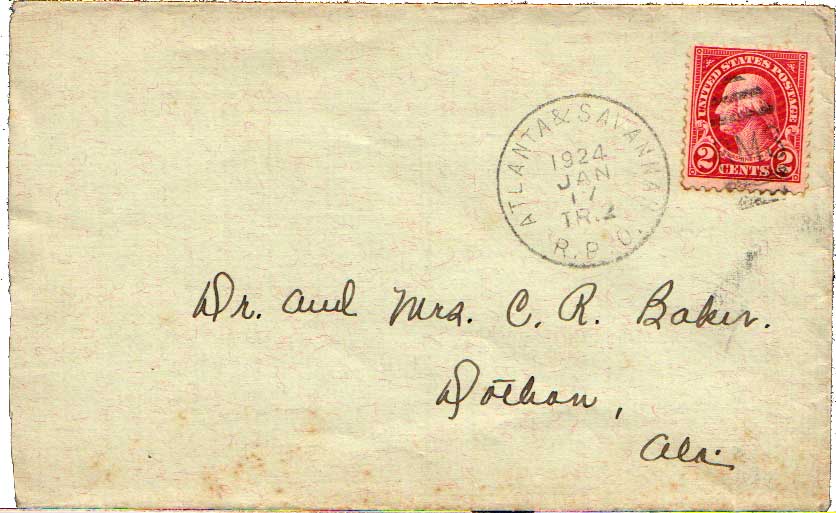 UNITED STATES POSTAGE
2 CENTS 2
ATLANTA & SAVANNAH
1924
JAN
17
TR. 2
R.P.O.
Dr. and Mrs. C. R. Baker.
Dothan,
Ala.